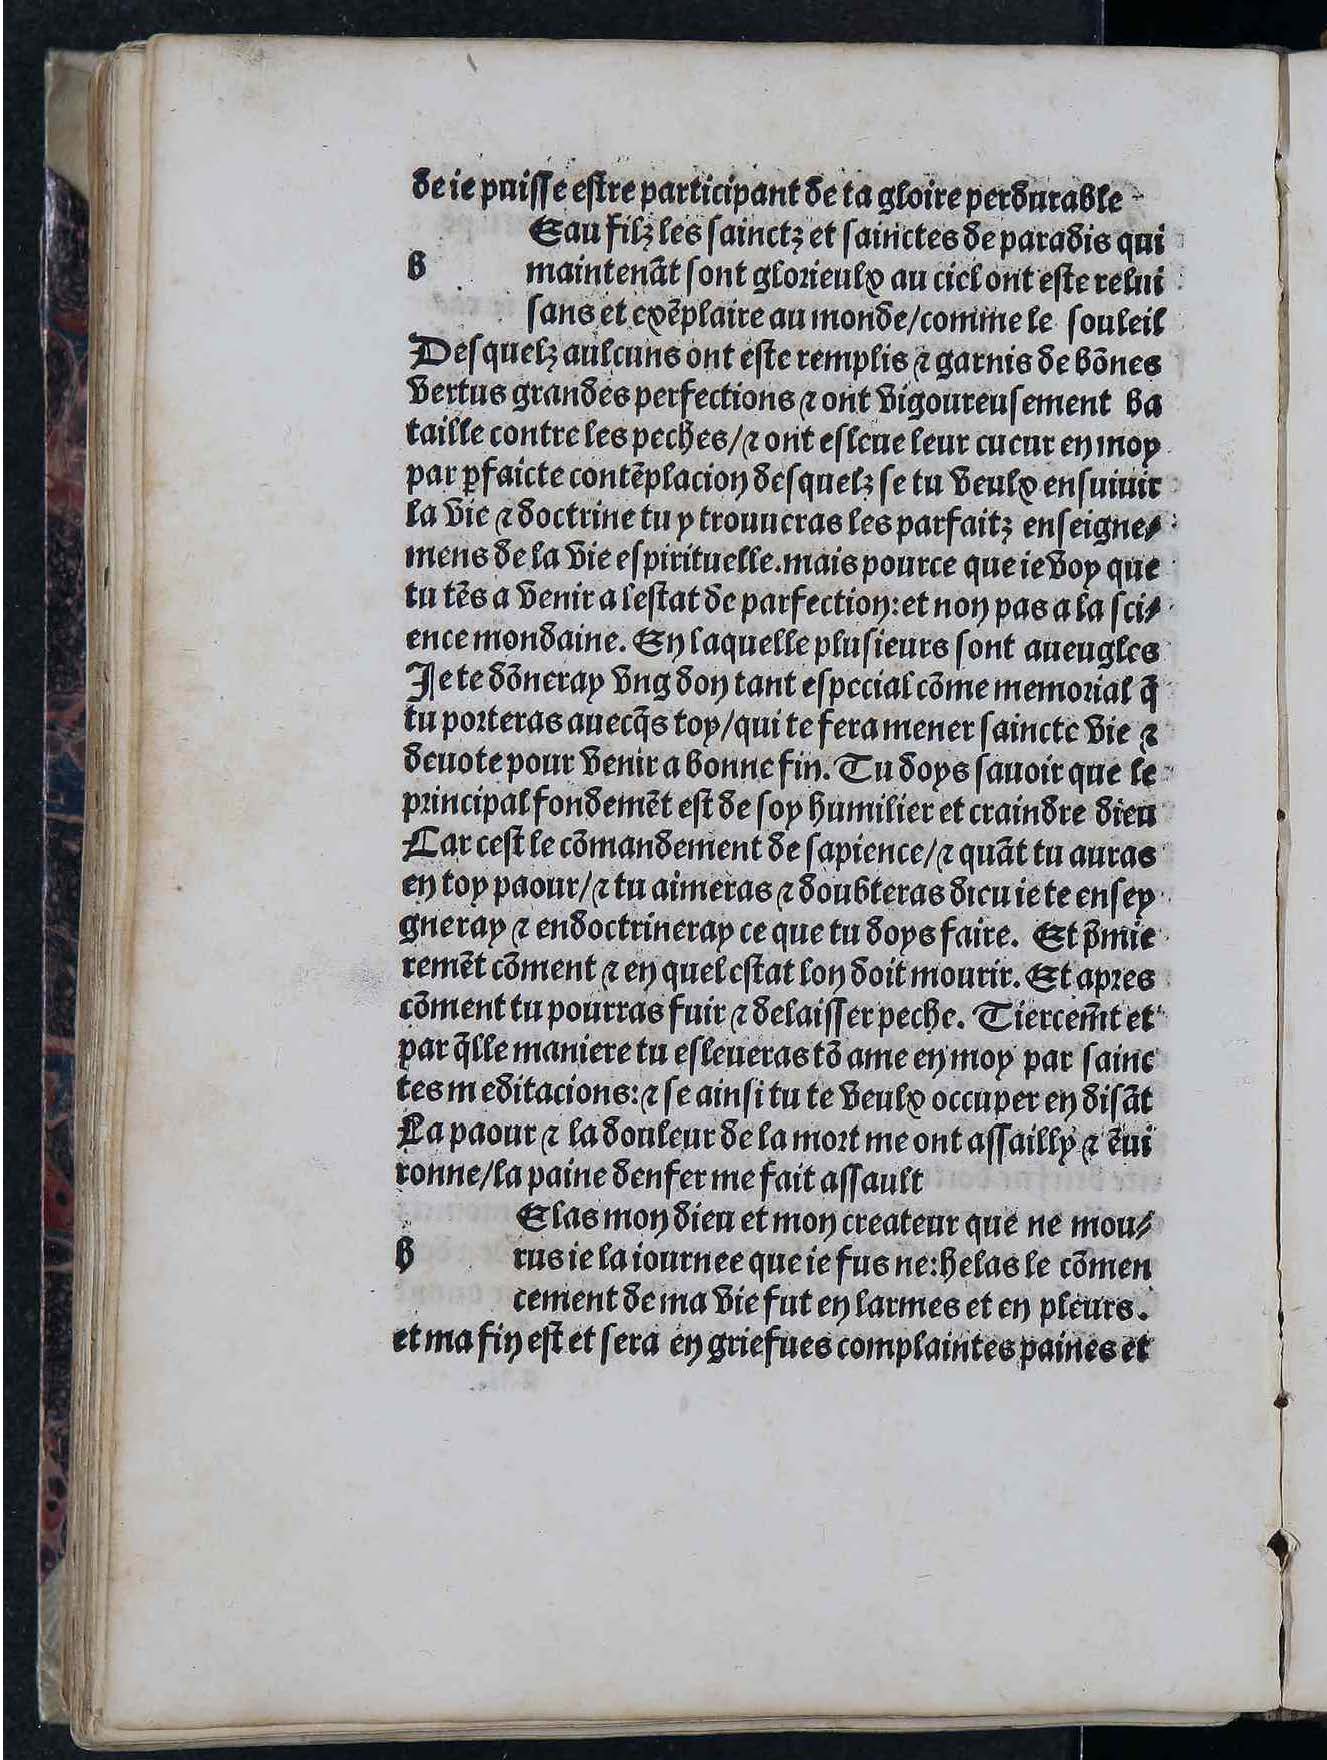 de ie puisse estre participant de ta gloire perdurable
Eau filz les sainctz et sainctes de paradis qui
b maintenãt sont glorieulx au ciel ont este relui
sans et exẽplaire au monde/comme le souleil
Desquelz aulcuns ont este remplis ⁊ garnis de bõnes
vertus grandes perfections ⁊ ont vigoureusement ba
taille contre les peches/⁊ ont esleue leur cueur en moy
par ꝑfaicte contẽplacion desquelz se tu veulx ensuiuir
la vie ⁊ doctrine tu y trouueras les parfaitz enseigne⸗
mens de la vie espirituelle. mais pource que ie voy que
tu tẽs a venir a lestat de parfection: et non pas a la sci⸗
ence mondaine. En laquelle plusieurs sont aueugles
Je te dõneray vng don tant especial cõme memorial q̃
tu porteras auecq̃s toy/qui te fera mener saincte vie ⁊
deuote pour venir a bonne fin. Tu doys sauoir que le
principal fondemẽt est de soy humilier et craindre dieu
Car cest le cõmandement de sapience/⁊ quãt tu auras
en toy paour/⁊ tu aimeras ⁊ doubteras dieu ie te ensey
gneray ⁊ endoctrineray ce que tu doys faire. Et p̃mie
remẽt cõment ⁊ en quel estat lon doit mourir. Et apres
cõment tu pourras fuir ⁊ delaisser peche. Tiercem̃t et
par q̃lle maniere tu esleueras tõ ame en moy par sainc
tes meditacions: ⁊ se ainsi tu te veulx occuper en disãt
La paour ⁊ la douleur de la mort me ont assailly ⁊ ẽui
ronne/la paine denfer me fait assault
Elas mon dieu et mon createur que ne mou⸗
h rus ie la iournee que ie fus ne: helas le cõmen
cement de ma vie fut en larmes et en pleurs.
et ma fin est et sera en griefues complaintes paines et